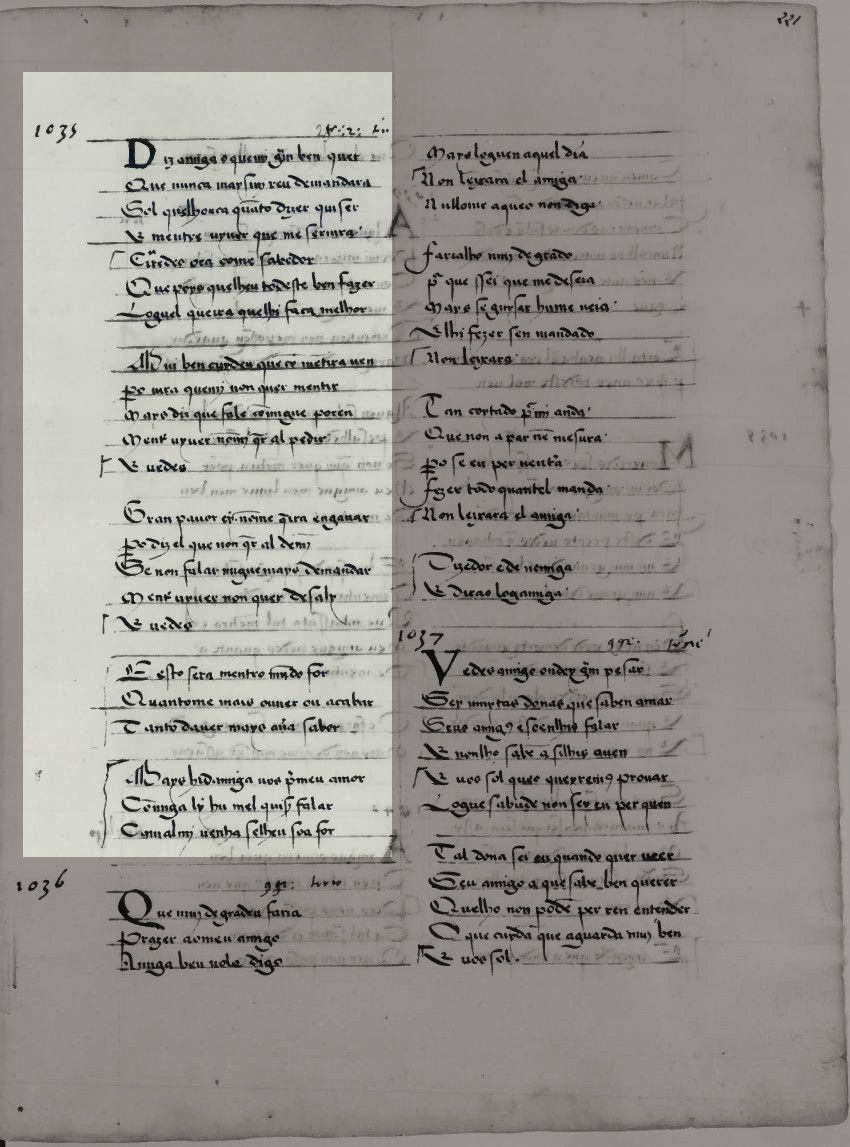 221
1035
Diz amiga o quemi gram ben quer
Que nunca mays mreu demandara
Sol quelhouca quāto dizer quiser
E mentre uyuer que me seruira
E uedes ora come sabedor
Que pero quelheu todeste ben fazer
Loguel queira quelhi faca melhor
Mui ben cuydeu que cō mētira ven
pero iura quemi non quer mentir
Mays diz que fale comigue poren
Ment uyuer nomi qr al pedir
E uedes
Gran pauor ey nome qira enganar
pero diz el que non qr al demi
Se non falar migue mays demandar
Ment uyuer non quer des aly
E uedes
E esto sera mentro mūdo for
Quantome mais ouuer ou acabar
Tanto dauer mays aūa sabor
Mays hidamiga uos pr meu amor
Comiga ly hu mel quiser falar
Ca mal mi uenha selheu soa for
1036
Que muy de gradeu faria
Prazer ao meu amigo
Amiga ben uolo digo
Mays loguen aquel dia
Non leixara el amiga
Nullome aqueo non diga
Farialho muy de grado
pr que ssei que me deseia
Mays se guysar hume ueia
E lhi fezer seu mandado
Non leixara
Tan coytado pr mi anda
Que non a par nē mesura
pero se eu per uentura
fezer todo quantel manda
Non leixara el amiga
Tizedor e de nemiga
E dirao logamiga
1037
Vedes amigo ondey gram pesar
Sey muytas donas que saben amar
Seus amigos e soenlhis falar
E nonlho saben a silhis auen
E uos sol que o queyremos prouar
Logue sabude non sey eu per quen
Tal dona sei eu quando quer ueer
Seu amigo a que sabe ben querer
Quelho non podē per ren entender
O que cuyda que aguarda muy ben
E uos sol.